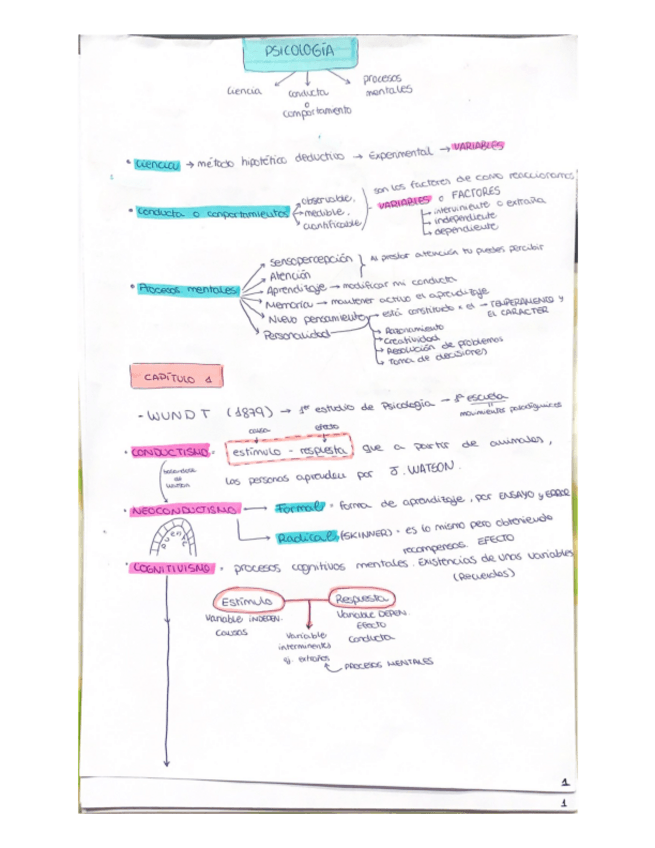 PSICOLOGÍA
Ciencia
conducta
o
comportamiento
procesos
mentales
• Ciencia → método hipotético deductivo → Experimental → VARIABLES
• Conducta o comportamientos
observable,
medible,
cuantificable
son los factores de como reaccionamos
VARIABLES o FACTORES
interviniente o extraña
independiente
dependiente
• Procesos mentales
Sensopercepción
Atención
Al prestar attención tu puedes percibir
Aprendizaje → modificar mi conducta
Memoria → mantener activo el aprendizaje
Nuevo pensamiento
Personalidad
está constituido x el → TEMPERAMENTO y
EL CARACTER
Razonamiento
Creatividad
Resolución de problemas
Toma de decisiones
CAPÍTULO 1
- WUNDT (1879) → 1er estudio de Psicología → 1ª escuela
movimientos paradigmáticos
causa
efecto
• CONDUCTISMO = estímulo - respuesta que a partir de animales,
las personas aprenden por J. WATSON.
basandose
de
WATSON
• NEOCONDUCTISMO
Formal = forma de aprendizaje, por ENSAYO y ERROR
Radical (SKINNER) = es lo mismo pero obteniendo
recompensas. EFECTO
PUENTE
• COGNITIVISMO = procesos cognitivos mentales. Existencias de unas variables
(Recuerdos)
Estímulo
Respuesta
Variable INDEPEN.
causas
Variable DEPEN.
Efecto
Conducta
Variable
interminentes
extraños
PROCESOS MENTALES
1
1